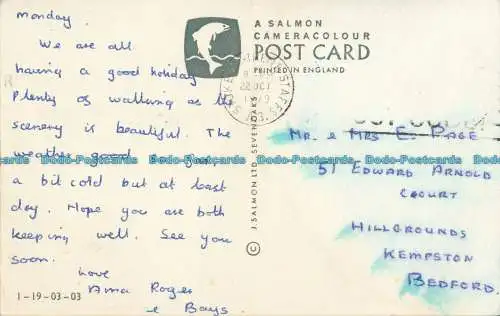 Monday
We are all
having a good holiday
Plenty of walking as the
scenery is beautiful. The
weather good
a bit cold but at least
day. Hope you are both
keeping well. See you
soon.
Love
Roger
e Boys.
1-19-03-03
A SALMON
CAMERACOLOUR
POST CARD
PRINTED IN ENGLAND
22 OCT
J. SALMON LTD., SEVENOAKS ©
Mr. & Mrs E. Page
51 Edward Arnold
Court
Hillgrounds
Kempston
Bedford.
Dodo-Postcards Dodo-Postcards Dodo-Postcards Dodo-Postcards